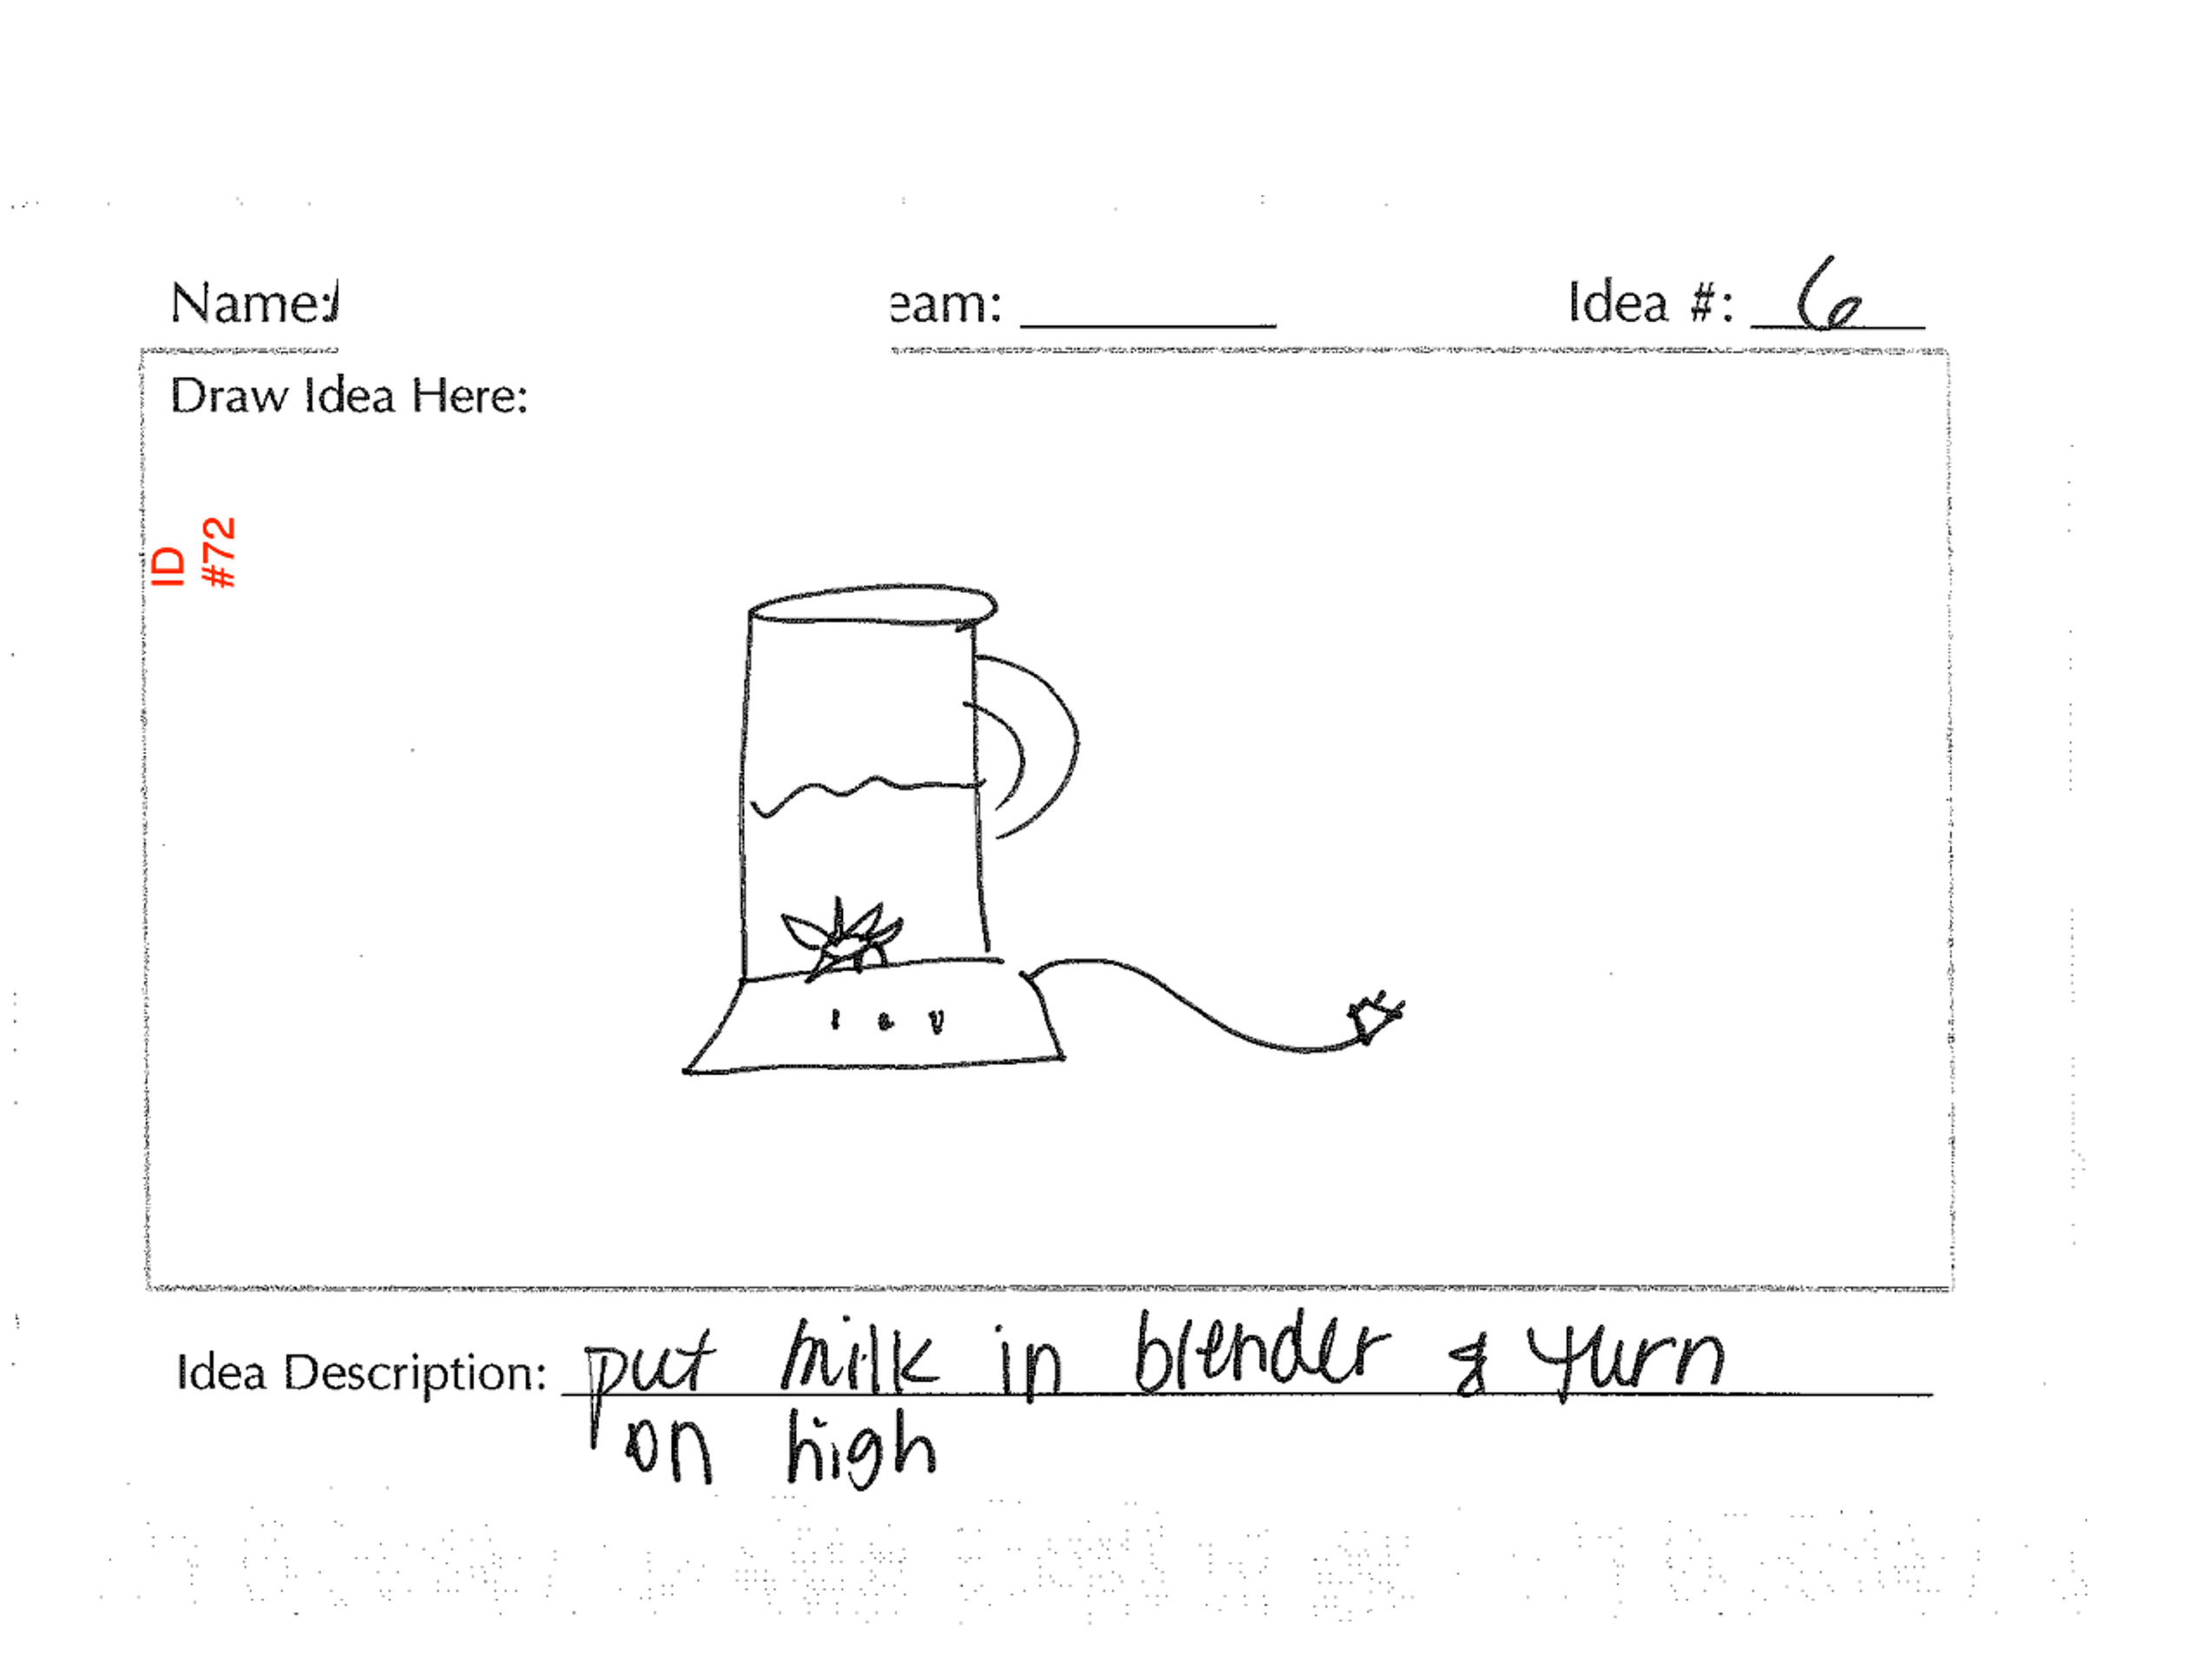 Name:
eam:
Idea #: 6
Draw Idea Here:
ID
#72
Idea Description: put milk in blender & turn
on high